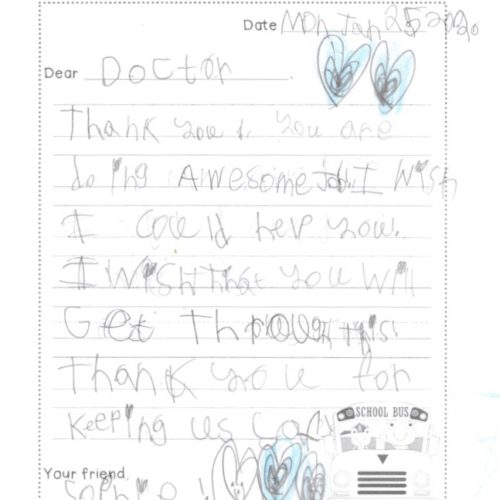 Date Mon Jan 25 2020
Dear Doctor
Thank you. You are
doing Awesome Job. I Wish
I could help you.
I Wish that you Will
Get Through this!
Thank you for
Keeping us
SCHOOL BUS
Your friend,
Sophie